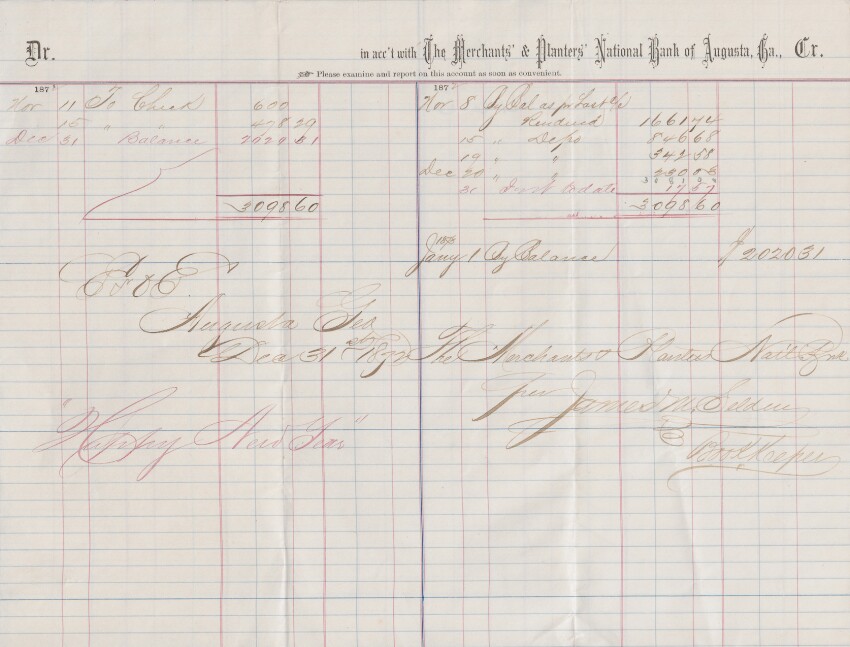 Dr. in acc't with The Merchants' & Planters' National Bank of Augusta, Ga., Cr.
Please examine and report on this account as soon as convenient.
187
Nov 11 To Check 600
15 " " 478 29
Dec 31 " Balance 2020 31
3098 60
187
Nov 8 By Bal as pr last a/c
Rendered 1661 74
15 " Deps 846 68
19 " " 342 58
Dec 20 " "
31 " Int to date 17 57
3098 60
Jany 1 By Balance $ 2020 31
E & O E
Augusta Geo
Dec 31st 1872
The Merchants & Planters Nat'l Bank
Per James M. Selden
Bookkeeper
"Happy New Year"